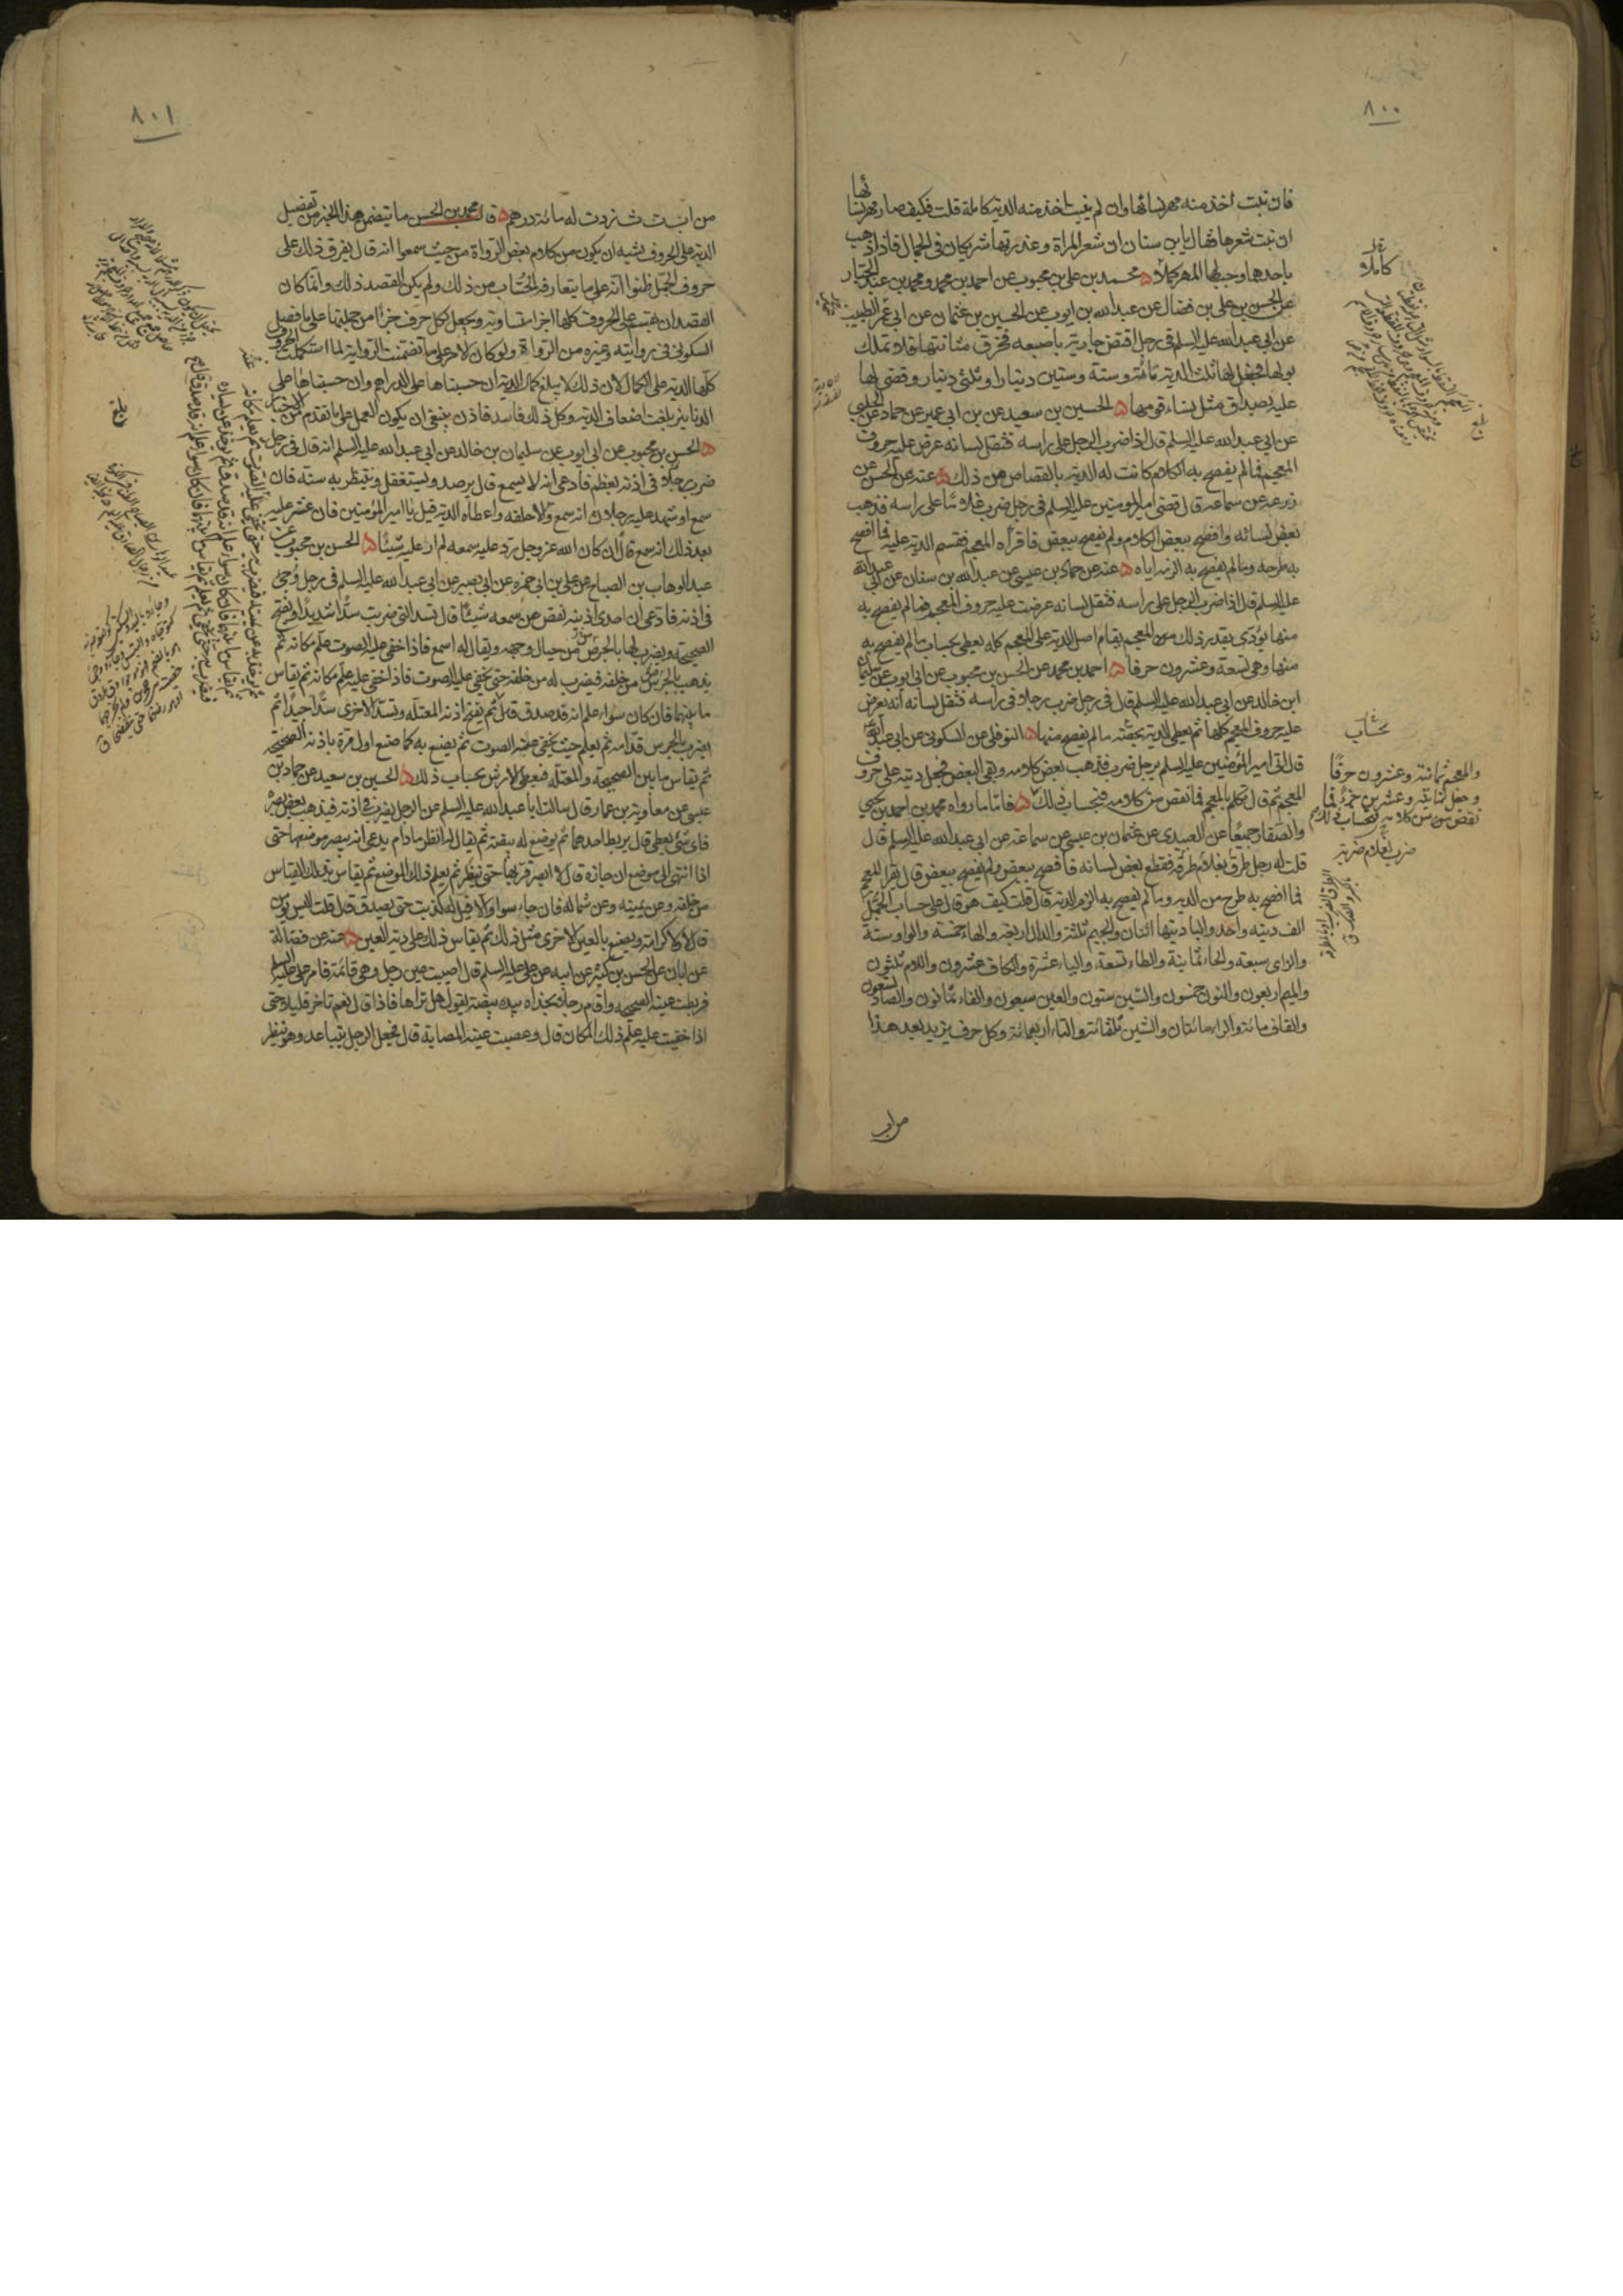 ٨٠٠
فان نبت اخذ منه مهر نسائها وان لم ينبت اخذ منه الدية كاملة قلت فكيف صار مهر نسائها
ان نبت شعرها فقال يا بن سنان ان شعر المراة وعذرتها شريكان في الجمال فاذا ذهب
باحدهما وجب لها المهر كملا محمد بن علي بن محبوب عن احمد بن محمد ومحمد بن عبد الجبار
عن الحسن بن علي بن فضال عن عبد الله بن ايوب عن الحسين بن عثمان عن ابي عمر الطبيب
عن ابي عبد الله عليه السلم في رجل اقتض جارية باصبعه فخرق مثانتها فلا تملك
بولها فجعل لها ثلث الدية مائة وستة وستين دينارا وثلثي دينار وقضى لها
عليه بصداق مثل نساء قومها الحسين بن سعيد عن بن ابي عمير عن حماد عن الحلبي
عن ابي عبد الله عليه السلم قال اذا ضرب الرجل على راسه فثقل لسانه عرض عليه حروف
المعجم فما لم يفصح به الكلام كانت له الدية بالقصاص من ذلك عنه عن الحسن عن
زرعه عن سماعه قال قضى امير المومنين عليه السلم في رجل ضرب غلاما على راسه فذهب
بعض لسانه وافصح ببعض الكلام ولم يفصح ببعض فاقرأه المعجم فقسم الدية عليه فما افصح
به طرحه وما لم يفصح به الزمه اياه عنه عن حماد بن عيسى عن عبد الله بن سنان عن ابي عبد الله
عليه السلم قال اذا ضرب الرجل على راسه فثقل لسانه عرضت عليه حروف المعجم فما لم يفصح به
منها يودى بقدر ذلك من المعجم يقام اصل الدية على المعجم كله يعطى بحساب ما لم يفصح به
منها وهي تسعة وعشرون حرفا احمد بن محمد عن الحسن بن محبوب عن ابي ايوب عن سليمان
ابن خالد عن ابي عبد الله عليه السلم قال في رجل ضرب رجلا في راسه فثقل لسانه انه يعرض
عليه حروف المعجم كلها ثم يعطى الدية بحصته ما لم يفصح منها النوفلي عن السكوني عن ابي عبد الله
قال اتى امير المؤمنين عليه السلم برجل ضرب فذهب بعض كلامه وبقي البعض فجعل ديته على حروف
المعجم ثم قال تكلم بالمعجم فما نقص من كلامه فبحساب ذلك فاما ما رواه محمد بن احمد بن يحيى
والصفار جميعا عن العبيدي عن عثمان بن عيسى عن سماعة عن ابي عبد الله عليه السلم قال
قلت له رجل طرق بغلام طرقة فقطع بعض لسانه فافصح ببعض ولم يفصح ببعض قال يقرا المعجم
فما افصح به طرح من الدية وما لم يفصح به الزم الدية قال قلت كيف هو قال على حساب الجمل
الف ديته واحد والبا ديتها اثنان والجيم ثلثة والدال اربعة والهاء خمسة والواو ستة
والزاى سبعة والحاء ثمانية والطاء تسعة والياء عشرة والكاف عشرون واللام ثلثون
والميم اربعون والنون خمسون والسين ستون والعين سبعون والفاء ثمانون والصاد تسعون
والقاف مائة والراء مائتان والشين ثلثمائة والتاء اربعمائة وكل حرف يزيد بعد هذا
من اب
كاملا
بحساب
والمعجم ثمانية وعشرون حرفا
وجعل ثمانية وعشرين جزءا فما
نقص من كلامه فبحساب ذلك
ضرب لغلام ضربة
٨٠١
من اب ت ث زدت له مائة درهم قال محمد بن الحسن ما يتضمن هذا الخبر من تفصيل
الدية على الحروف يشبه ان يكون من كلام بعض الرواة من حيث سمعوا انه قال يفرق ذلك على
حروف الجمل ظنوا انه على ما يتعارفه الحساب من ذلك ولم يكن القصد ذلك وانما كان
القصد ان يقسم على الحروف كلها اجزاء متساوية ويجعل لكل حرف جزأ من جملتها على ما فصل
السكوني في روايته وغيره من الرواة ولو كان الامر على ما تضمنت الرواية لما استكملت الحروف
كلها الدية على الكمال لان ذلك لا يبلغ كمال الدية ان حسبناها على الدراهم وان حسبناها على
الدنانير بلغت اضعاف الدية وكل ذلك فاسد فاذن ينبغي ان يكون العمل على ما تقدم من الاخبار
الحسن بن محبوب عن ابي ايوب عن سليمان بن خالد عن ابي عبد الله عليه السلم انه قال في رجل
ضرب رجلا في اذنه بعظم فادعى انه لا يسمع قال يرصد ويستغفل وينتظر به سنة فان
سمع او شهد عليه رجلان انه سمع والا حلفه واعطاه الدية قيل يا امير المؤمنين فان عثر عليه
بعد ذلك انه سمع قال ان كان الله عز وجل رد عليه سمعه لم ار عليه شيئا الحسن بن محبوب عن
عبد الوهاب بن الصباح عن علي بن ابي حمزه عن ابي بصير عن ابي عبد الله عليه السلم في رجل وجئ
في اذنه فادعى ان احدى اذنيه نقص من سمعه شيئا قال تسد التي ضربت سدا شديدا ويفتح
الصحيحة ويضرب لها بالجرس من حيال وجهه ويقال له اسمع فاذا خفي عليه الصوت علم مكانه ثم
يذهب بالجرس من خلفه فيضرب له من خلفه حتى يخفى عليه الصوت فاذا خفي عليه علم مكانه ثم يقاس
ما بينهما فان كان سواء علم انه قد صدق قال ثم يفتح اذنه المعتلة وتسد الاخرى سدا جيدا ثم
يضرب بالجرس قدامه ثم يعلم حيث يخفى عليه الصوت ثم يصنع به كما صنع اول مرة باذنه الصحيحة
ثم يقاس ما بين الصحيحة والمعتلة فيعطى الارش بحساب ذلك الحسين بن سعيد عن حماد بن
عيسى عن معاوية بن عمار قال سالت ابا عبد الله عليه السلم عن الرجل يضرب في اذنه فيذهب بعض بصره
فاى شئ يعطى قال يربط احدهما ثم يوضع له بيضة ثم يقال له انظر ما دام يدعى انه يبصر موضعها حتى
اذا انتهى الى موضع ان جازه قال لا ابصر قربها حتى ينظر ثم يعلم ذلك الموضع ثم يقاس بذلك القياس
من خلفه وعن يمينه وعن شماله فان جاء سواء والا قيل له كذبت حتى يصدق قال قلت اليس يؤمن
قال لا ولا كرامة ويصنع بالعين الاخرى مثل ذلك ثم يقاس ذلك على دية العين عنه عن فضالة
عن ابان عن الحسن بن كثير عن ابيه عن علي عليه السلم قال اصيبت عين رجل وهي قائمة فامر علي عليه السلم
فربطت عينه الصحيحه واقام رجلا بحذاه بيده بيضة يقول هل تراها فاذا قال نعم تاخر قليلا حتى
اذا خفيت عليه علم ذلك المكان قال وعصبت عينه المصابة قال فجعل الرجل يتباعد وهو ينظر